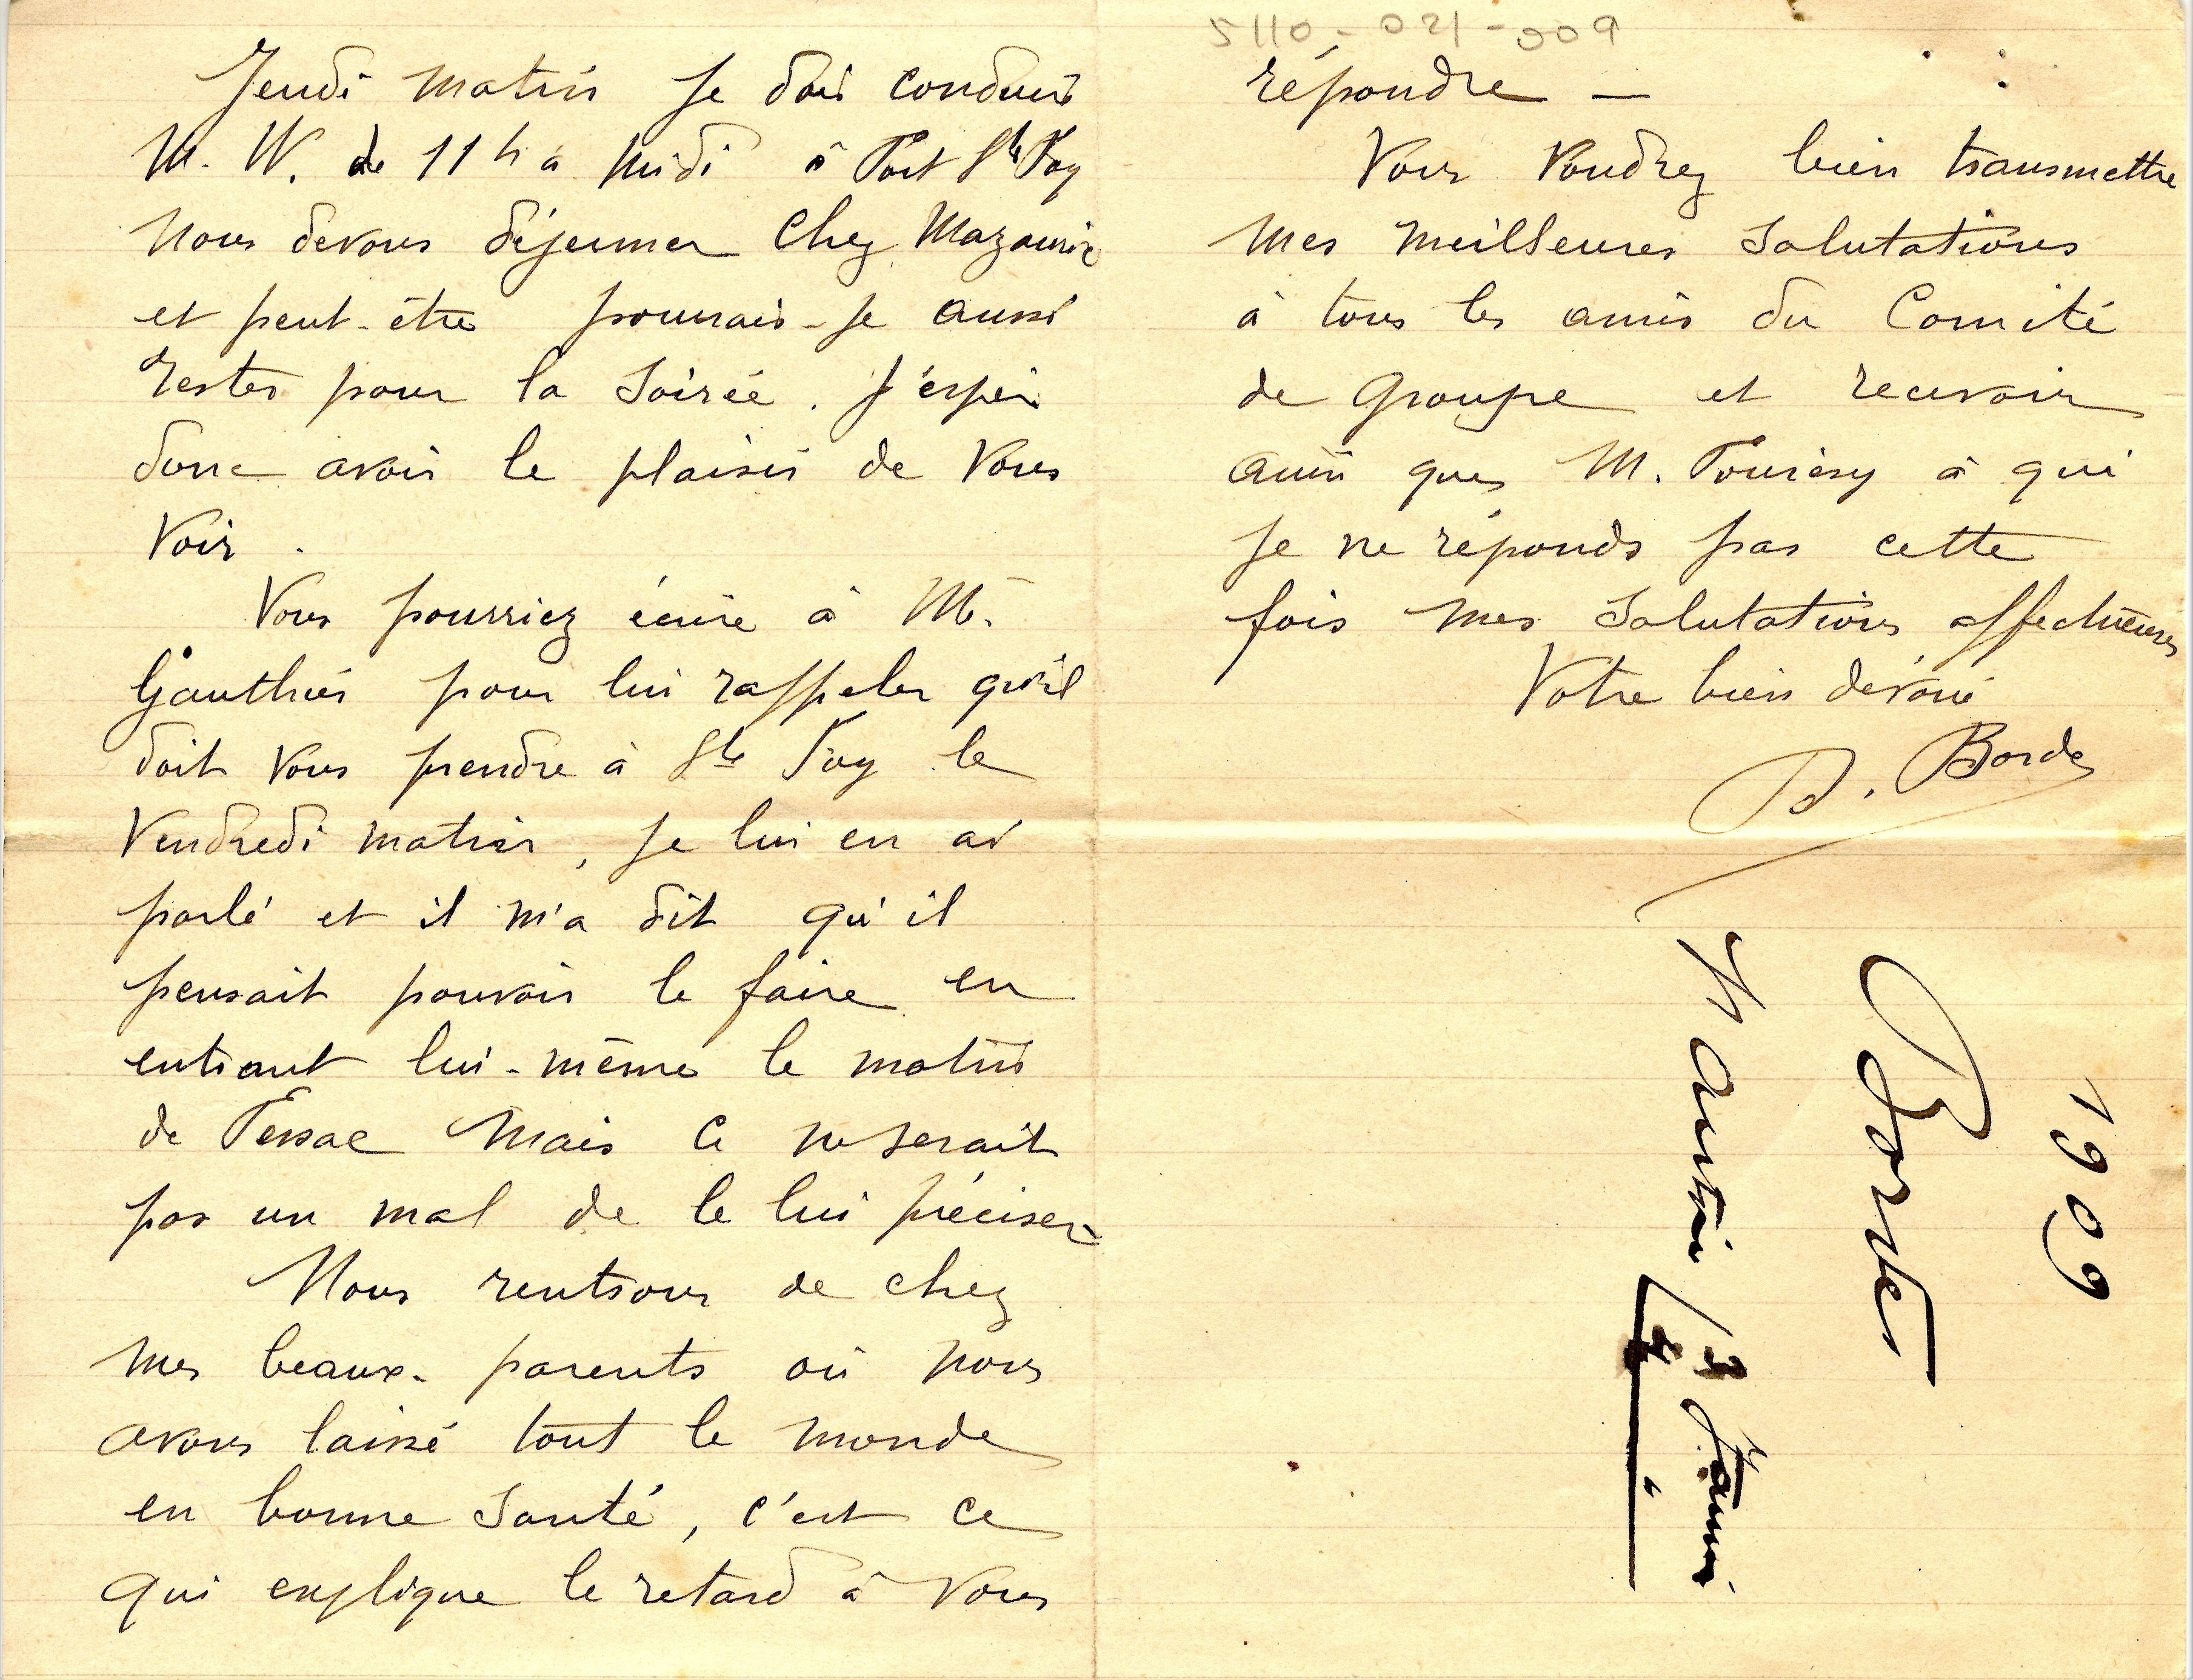 Jeudi matin je dois conduire
M. W. de 11 h à midi à Port Ste Foy
Nous devons déjeuner chez Mazauric
et peut-être pourrais-je aussi
rester pour la soirée. J'espère
donc avoir le plaisir de vous
voir.
Vous pourriez écrire à M.
Gauthier pour lui rappeler qu'il
doit vous prendre à Ste Foy le
Vendredi matin, je lui en ai
parlé et il m'a dit qu'il
pensait pouvoir le faire en
entrant lui-même le matin
de Pessac Mais ce ne serait
pas un mal de le lui préciser
Nous rentrons de chez
mes beaux-parents où nous
avons laissé tout le monde
en bonne santé, c'est ce
qui explique le retard à vous
5110-021-009
répondre —
Vous voudrez bien transmettre
mes meilleures salutations
à tous les amis du Comité
de Groupe et recevoir
ainsi que M.
à qui
je ne réponds pas cette
fois mes salutations affectueuses
Votre bien dévoué
D. Bordes
1909
Bordes
13 Janvier